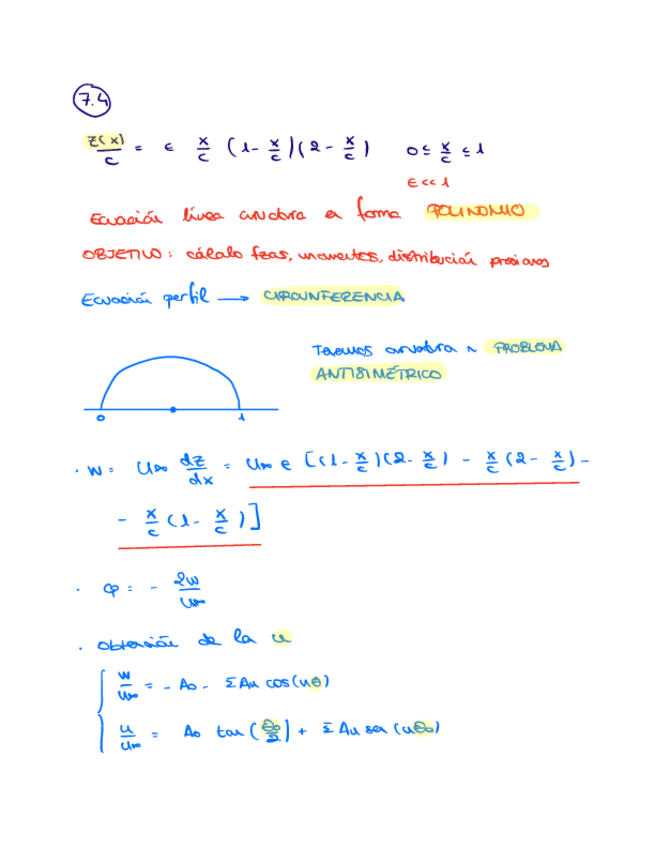 7.4
z(x)/c = ϵ x/c (1- x/c)(2- x/c) 0≤ x/c ≤1
ϵ<<1
Ecuación línea curvatura en forma POLINOMIO
OBJETIVO: cálculo fzas, momentos, distribución presiones
Ecuación perfil → CIRCUNFERENCIA
Tenemos curvatura ~ PROBLEMA
ANTISIMÉTRICO
0 1
· w = U∞ dz/dx = U∞ ϵ [(1- x/c)(2- x/c) - x/c (2- x/c) -
- x/c (1- x/c)]
· cp = - 2u/U∞
· Obtención de la u
w/U∞ = - A0 - Σ An cos(nθ)
u/U∞ = A0 tan(θ0/2) + Σ An sen(nθ0)